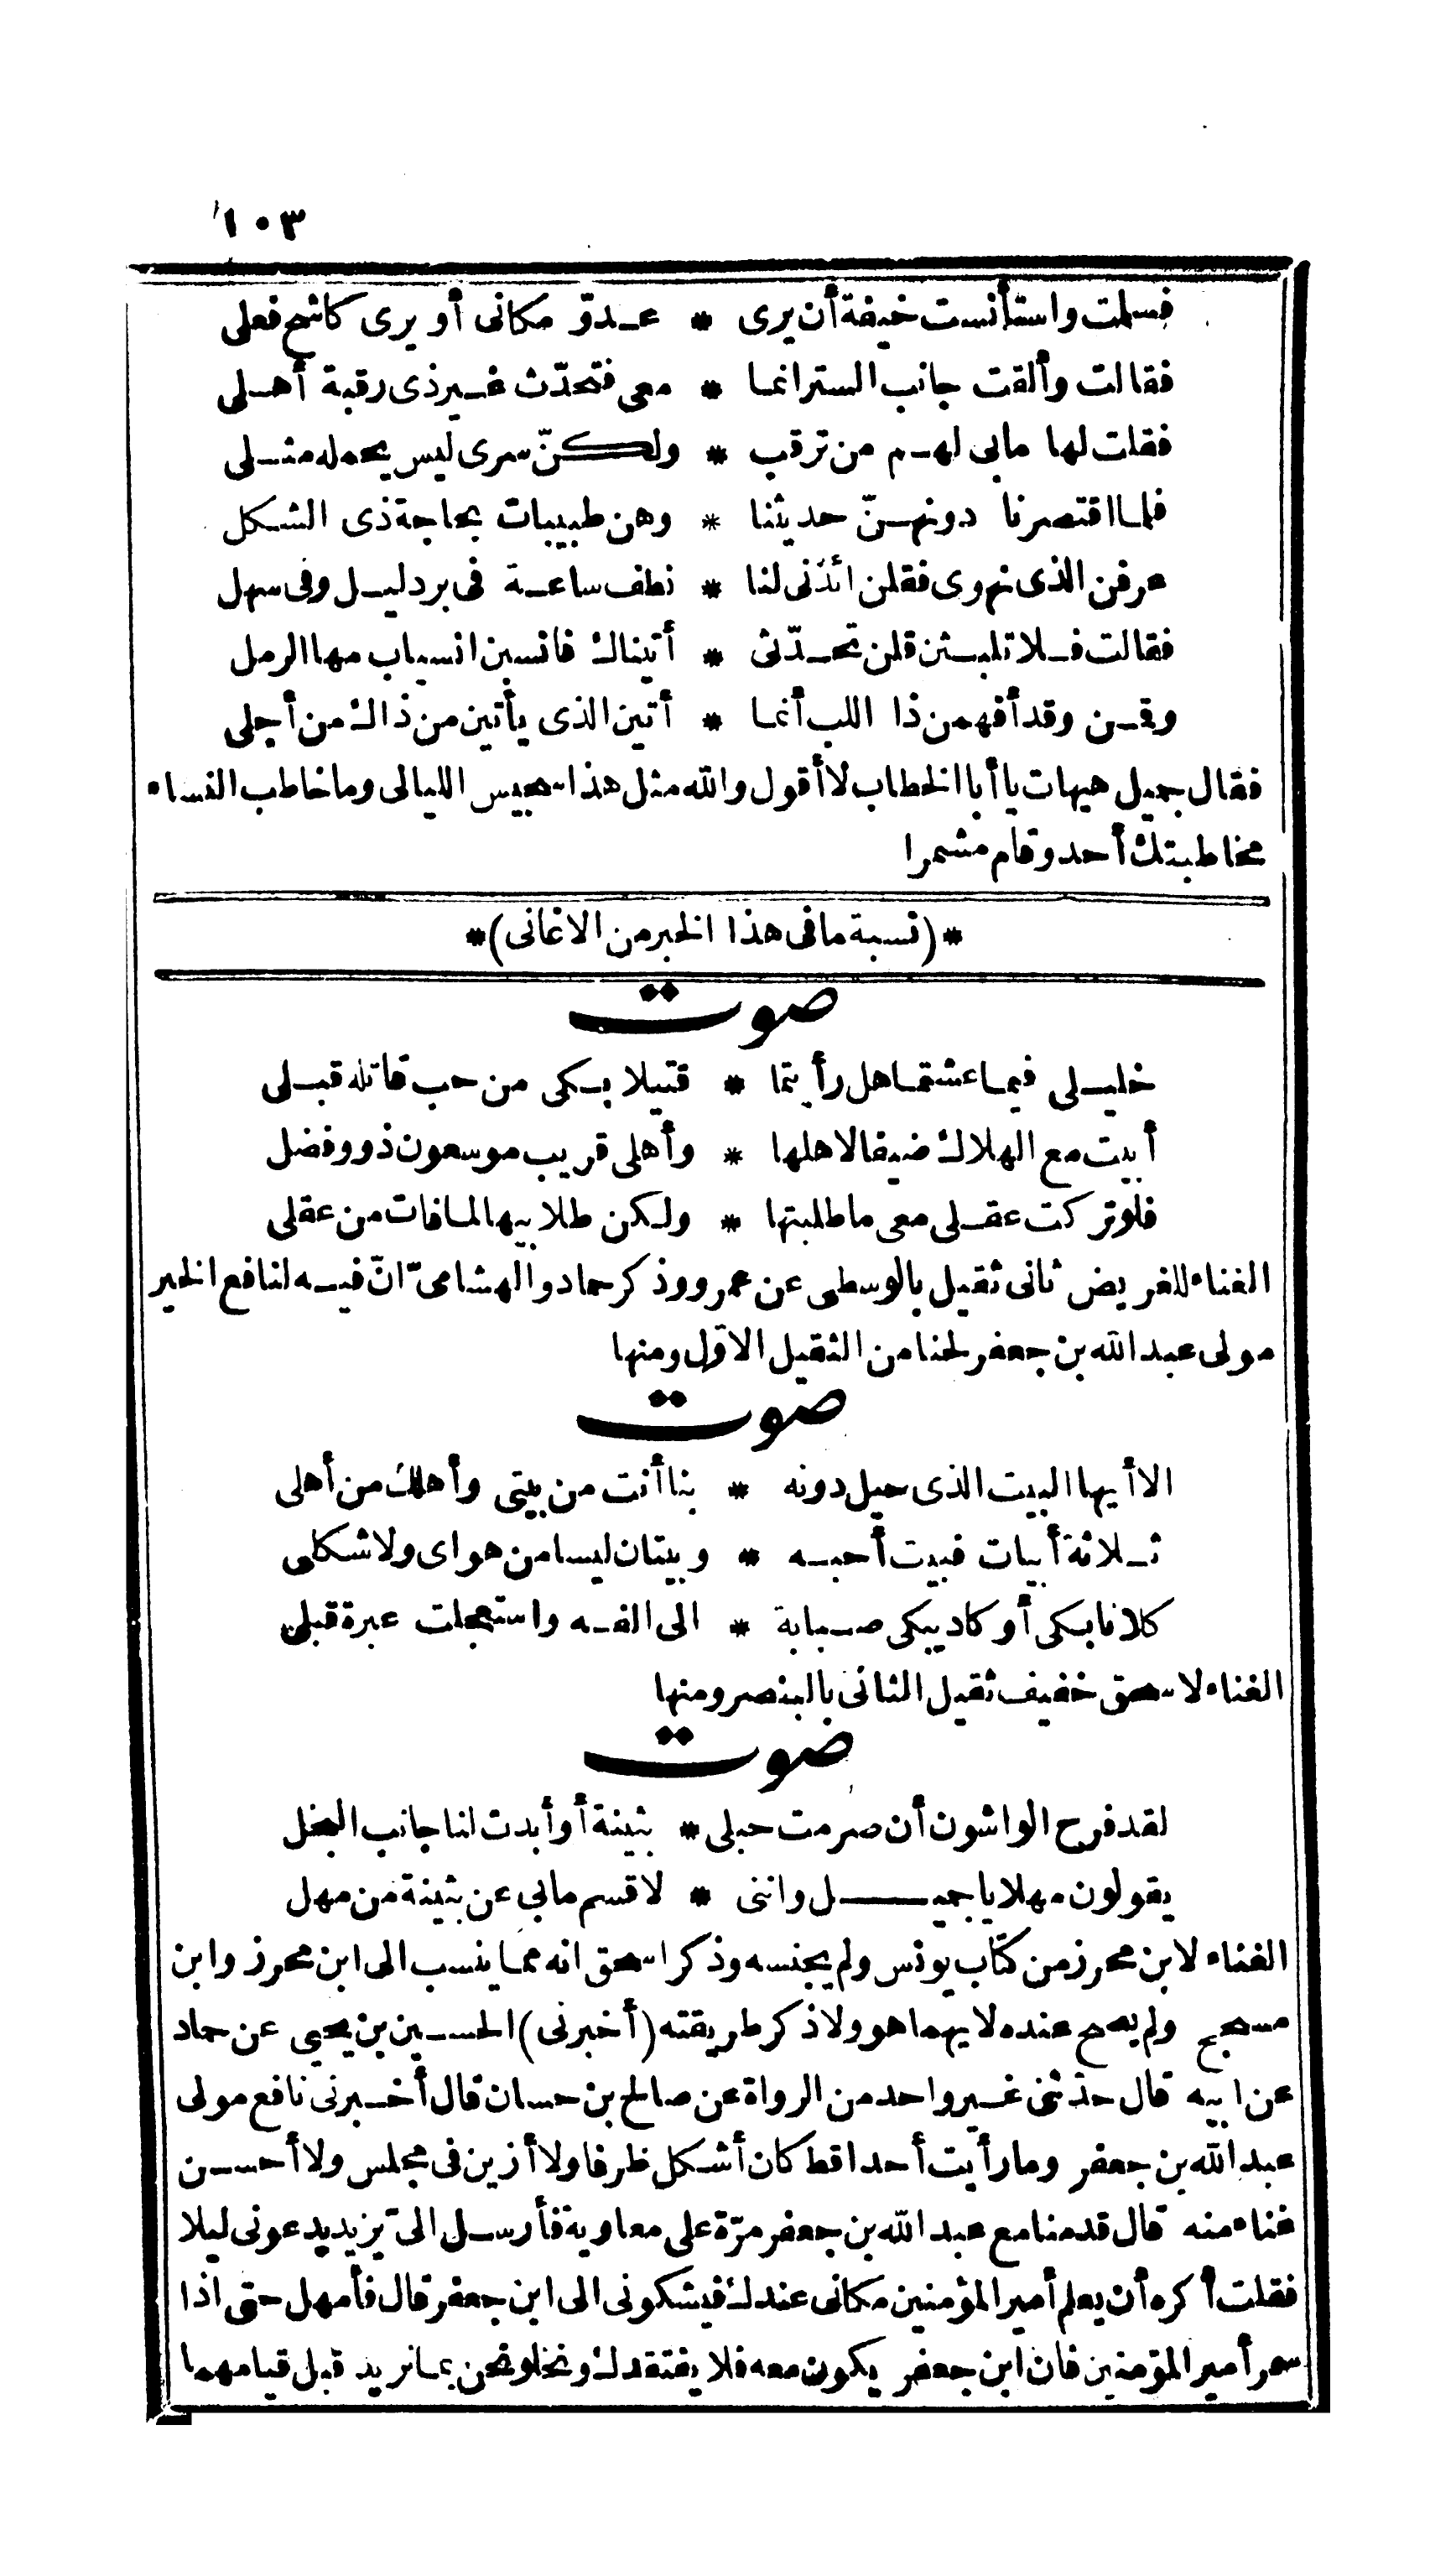 ١٠٣
فسلمت واستأنست خيفة أن يرى * عدوّ مكانى أو يرى كاشح فعلى
فقالت وألقت جانب الستر انما * معى فتحدّث غير ذى رقبة أهلى
فقلت لها مابى لهم من ترقب * ولكنّ سرى ليس يحمله مثلى
فلما اقتصرنا دونهنّ حديثنا * وهن طبيبات بحاجة ذى الشكل
عرفن الذى نهوى فقلن ائذنى لنا * نطف ساعة فى برد ليل وفى سهل
فقالت فلا تلبثن قلن تحدّثى * أتيناك فانسبن انسياب مها الرمل
وقمن وقد أفهمن ذا اللب أنما * أتين الذى يأتين من ذاك من أجلى
فقال جميل هيهات يا أبا الخطاب لا أقول والله مثل هذا سجيس الليالى وما خاطب النساء
مخاطبتك أحد وقام مشمرا
*(نسبة ما فى هذا الخبر من الاغانى)*
صوت
خليلى فيما عشتما هل رأيتما * قتيلا بكى من حب قاتله قبلى
أبيت مع الهلاك ضيفا لاهلها * وأهلى قريب موسعون ذوو فضل
فلو تركت عقلى معى ما طلبتها * ولكن طلابيها لما فات من عقلى
الغناء للغريض ثانى ثقيل بالوسطى عن عمرو وذكر حماد والهشامىّ انّ فيه لنافع الخير
مولى عبد الله بن جعفر لحنا من الثقيل الاوّل ومنها
صوت
الا أيها البيت الذى حيل دونه * بنا أنت من بيتى وأهلك من أهلى
ثلاثة أبيات فبيت أحبه * وبيتان ليسا من هواى ولا شكلى
كلانا بكى أو كاد يبكى صبابة * الى الفه واستعجلت عبرة قبلى
الغناء لاسحق خفيف ثقيل الثانى بالبنصر ومنها
صوت
لقد فرح الواشون أن صرمت حبلى * بثينة أو أبدت لنا جانب البخل
يقولون مهلا يا جميل واننى * لاقسم مابى عن بثينة من مهل
الغناء لابن محرز من كتاب يونس ولم يجنسه وذكر اسحق انه مما ينسب الى ابن محرز وابن
مسجح ولم يصح عنده لايهما هو ولا ذكر طريقته (أخبرنى) الحسين بن يحيى عن حماد
عن ابيه قال حدّثنى غير واحد من الرواة عن صالح بن حسان قال أخبرنى نافع مولى
عبد الله بن جعفر وما رأيت أحدا قط كان أشكل ظرفا ولا أزين فى مجلس ولا أحسن
غناء منه قال قدمنا مع عبد الله بن جعفر مرّة على معاوية فأرسل الىّ يزيد يدعونى ليلا
فقلت أكره أن يعلم أمير المؤمنين مكانى عندك فيشكونى الى ابن جعفر قال فأمهل حتى اذا
سمر أمير المؤمنين فان ابن جعفر يكون معه فلا يفتقدك ونخلو نحن بما نريد قبل قيامهما